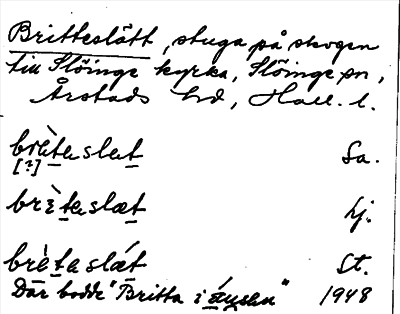 Britteslätt, stuga på skogen
till Slöinge kyrka, Slöinge sn,
Årstads hd, Hall. l.
brètaslæt Sa.
[?]
brètaslæt Lj.
brètaslǽt St.
Där bodde "Britta i 1948